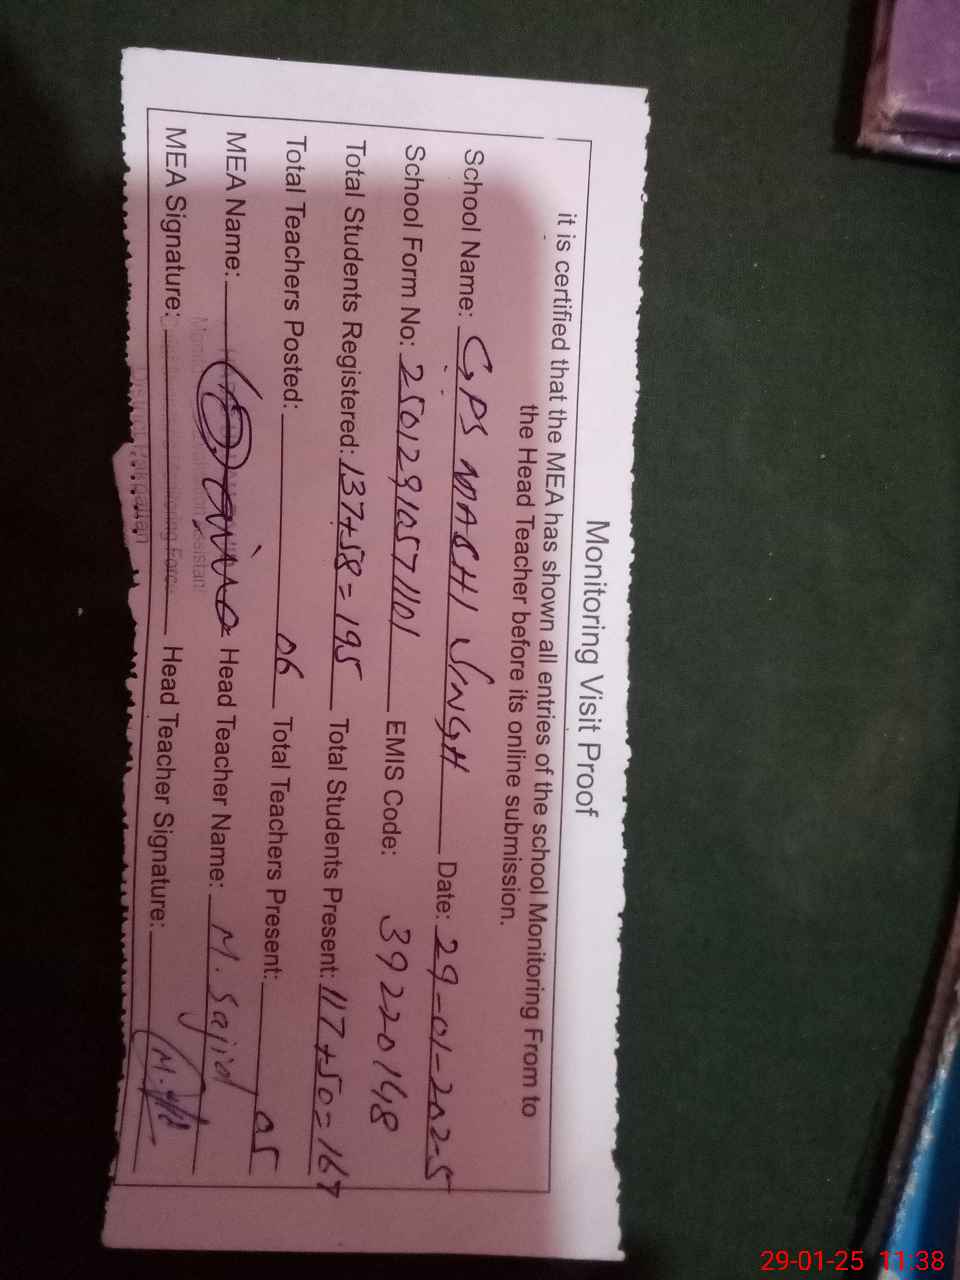 Monitoring Visit Proof
it is certified that the MEA has shown all entries of the school Monitoring From to
the Head Teacher before its online submission.
School Name: GPS MACHI SINGH Date: 29-01-2025
School Form No: 25012910571101 EMIS Code: 39220148
Total Students Registered: 137+58=195 Total Students Present: 117+50=167
Total Teachers Posted: 06 Total Teachers Present: 05
MEA Name: Head Teacher Name: M. Sajid
MEA Signature: Head Teacher Signature:
Monitoring Force
Pakpattan
29-01-25 11:38